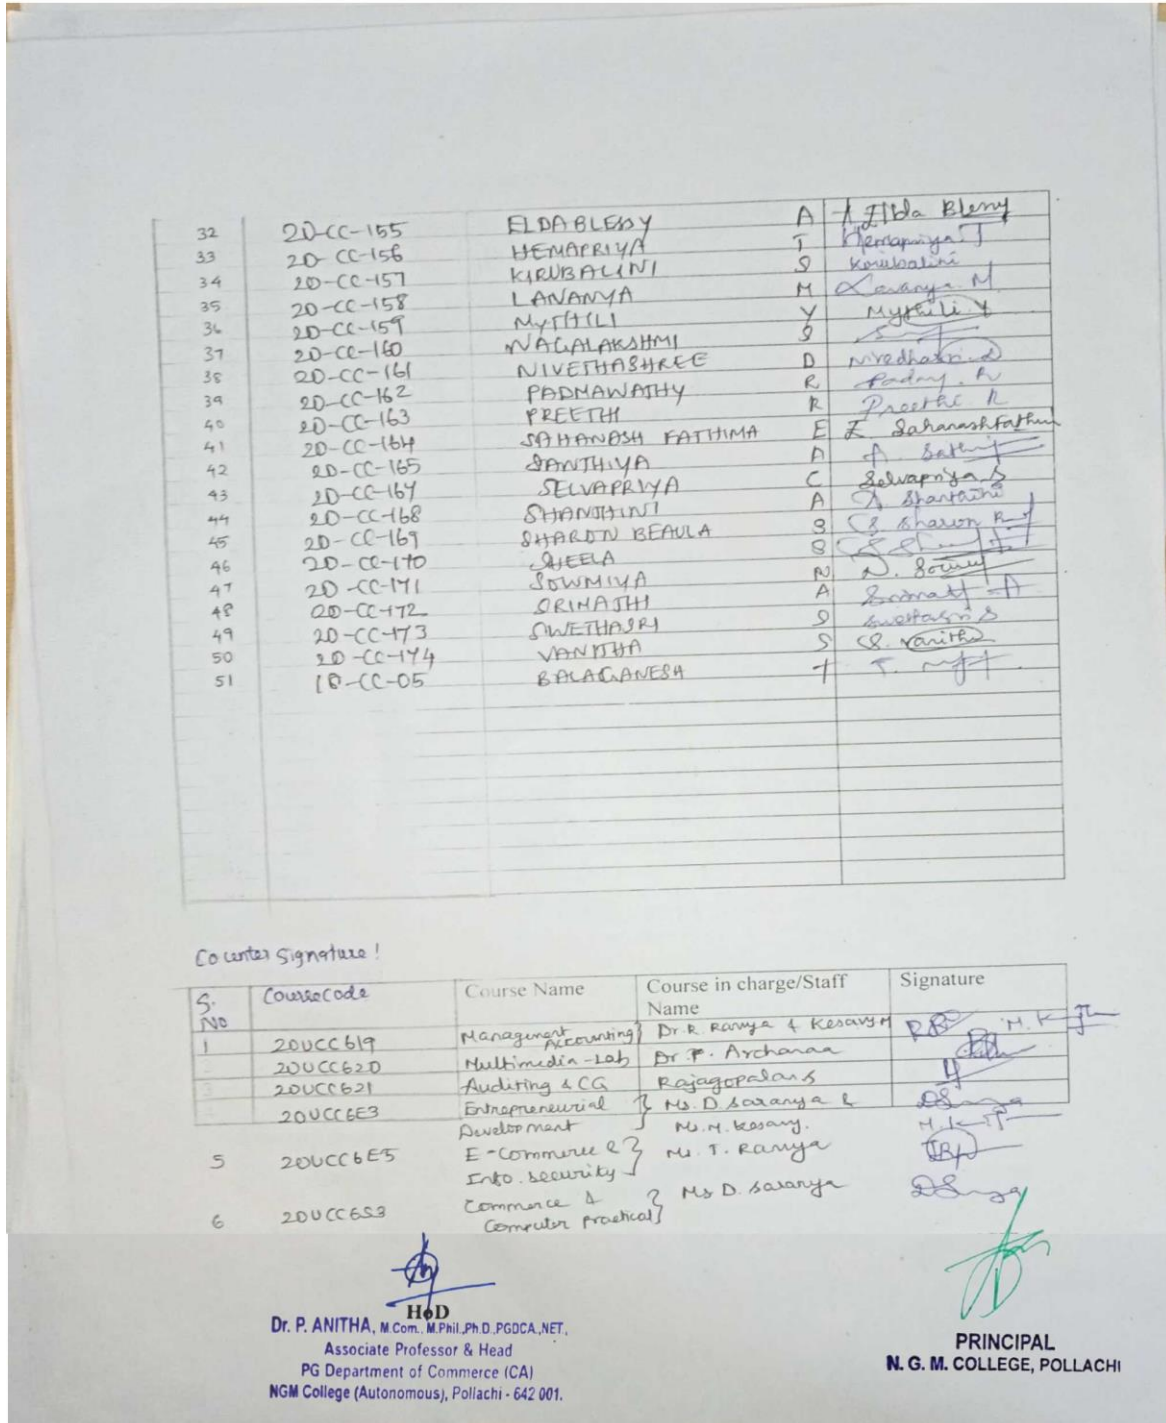 32 20-CC-155 ELDABLESSY A A Elda Blessy
33 20-CC-156 HEMAPRIYA T Hemapriya.T
34 20-CC-157 KIRUBALINI S Kirubalini
35 20-CC-158 LANANYA M Lavanya. M
36 20-CC-159 MYTHILI Y Mythili. Y
37 20-CC-160 NAGALAKSHMI S
38 20-CC-161 NIVETHASHREE D
39 20-CC-162 PADMAWATHY R
40 20-CC-163 PREETHI R Preethi R
41 20-CC-164 SAHANASH FATHIMA E E. SahanashFathim
42 20-CC-165 SANTHIYA A
43 20-CC-167 SELVAPRIYA C Selvapriya
44 20-CC-168 SHANTHINI A A Shanthini
45 20-CC-169 SHARON BEAULA S S. Sharon
46 20-CC-170 SHEELA S
47 20-CC-171 SOWMIYA N N.
48 20-CC-172 SRIMATHI A
49 20-CC-173 SWETHASRI S Swethasri S
50 20-CC-174 VANITHA S S. Vanitha
51 18-CC-05 BALAGANESH T T.
Counter Signature!
S. No Course Code Course Name Course in charge/Staff Name Signature
1 20UCC619 Management Accounting} Dr. R. Ramya & Kesavy M M. K
20UCC620 Multimedia-Lab Dr. P. Archanaa
20UCC621 Auditing & CG Rajagopalan S
20UCC6E3 Entrepreneurial Development } Ms. D. Saranya & Ms. M. Kesavy.
5 20UCC6E5 E-Commerce & Info. Security } Ms. T. Ramya
6 20UCC6S3 Commerce & Computer Practical } Ms D. Saranya
HoD
Dr. P. ANITHA, M.Com., M.Phil.,Ph.D.,PGDCA.,NET.,
Associate Professor & Head
PG Department of Commerce (CA)
NGM College (Autonomous), Pollachi - 642 001.
PRINCIPAL
N. G. M. COLLEGE, POLLACHI